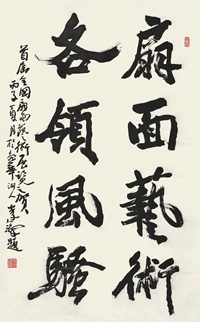 扇面藝術
各領風騷
首届全國扇面藝術展覽之賀
丙子夏月於金華湖人